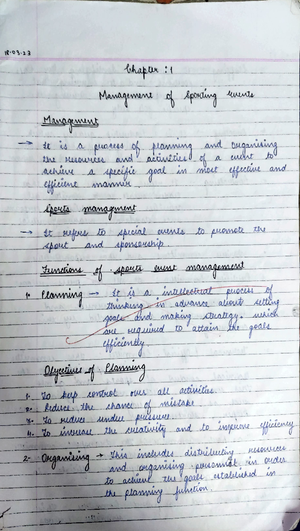 18-03-23
Chapter : 1
Management of Sporting events
Management
→ It is a process of planning and organising
the resources and activities of a event to
achieve a specific goal in most effective and
efficient manner.
Sports managment
→ It refers to special events to promote the
sport and sponsorship.
Functions of sports event management
1. Planning → It is a intellectual process of
thinking in advance about setting
goals and making strategy. which
are required to attain the goals
efficiency
Objectives of Planning
1. To keep control over all activities.
2. Reduce the chance of mistake.
3. To reduce undue pressure.
4. To increase the creativity and to improve efficiency
2- Organising → This includes distributing resources
and organising personnel in order
to achieve the goals established in
the planning function.